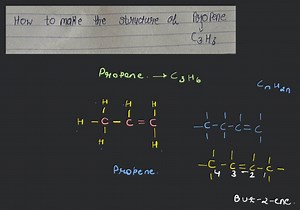 How to make the structure of Propene
C3H8
Propene → C3H6
CnH2n
H H H
H - C - C = C
H H
Propene
-C-C-C=C-
-C-C-C=C-
4 3 2 1
But-2-ene